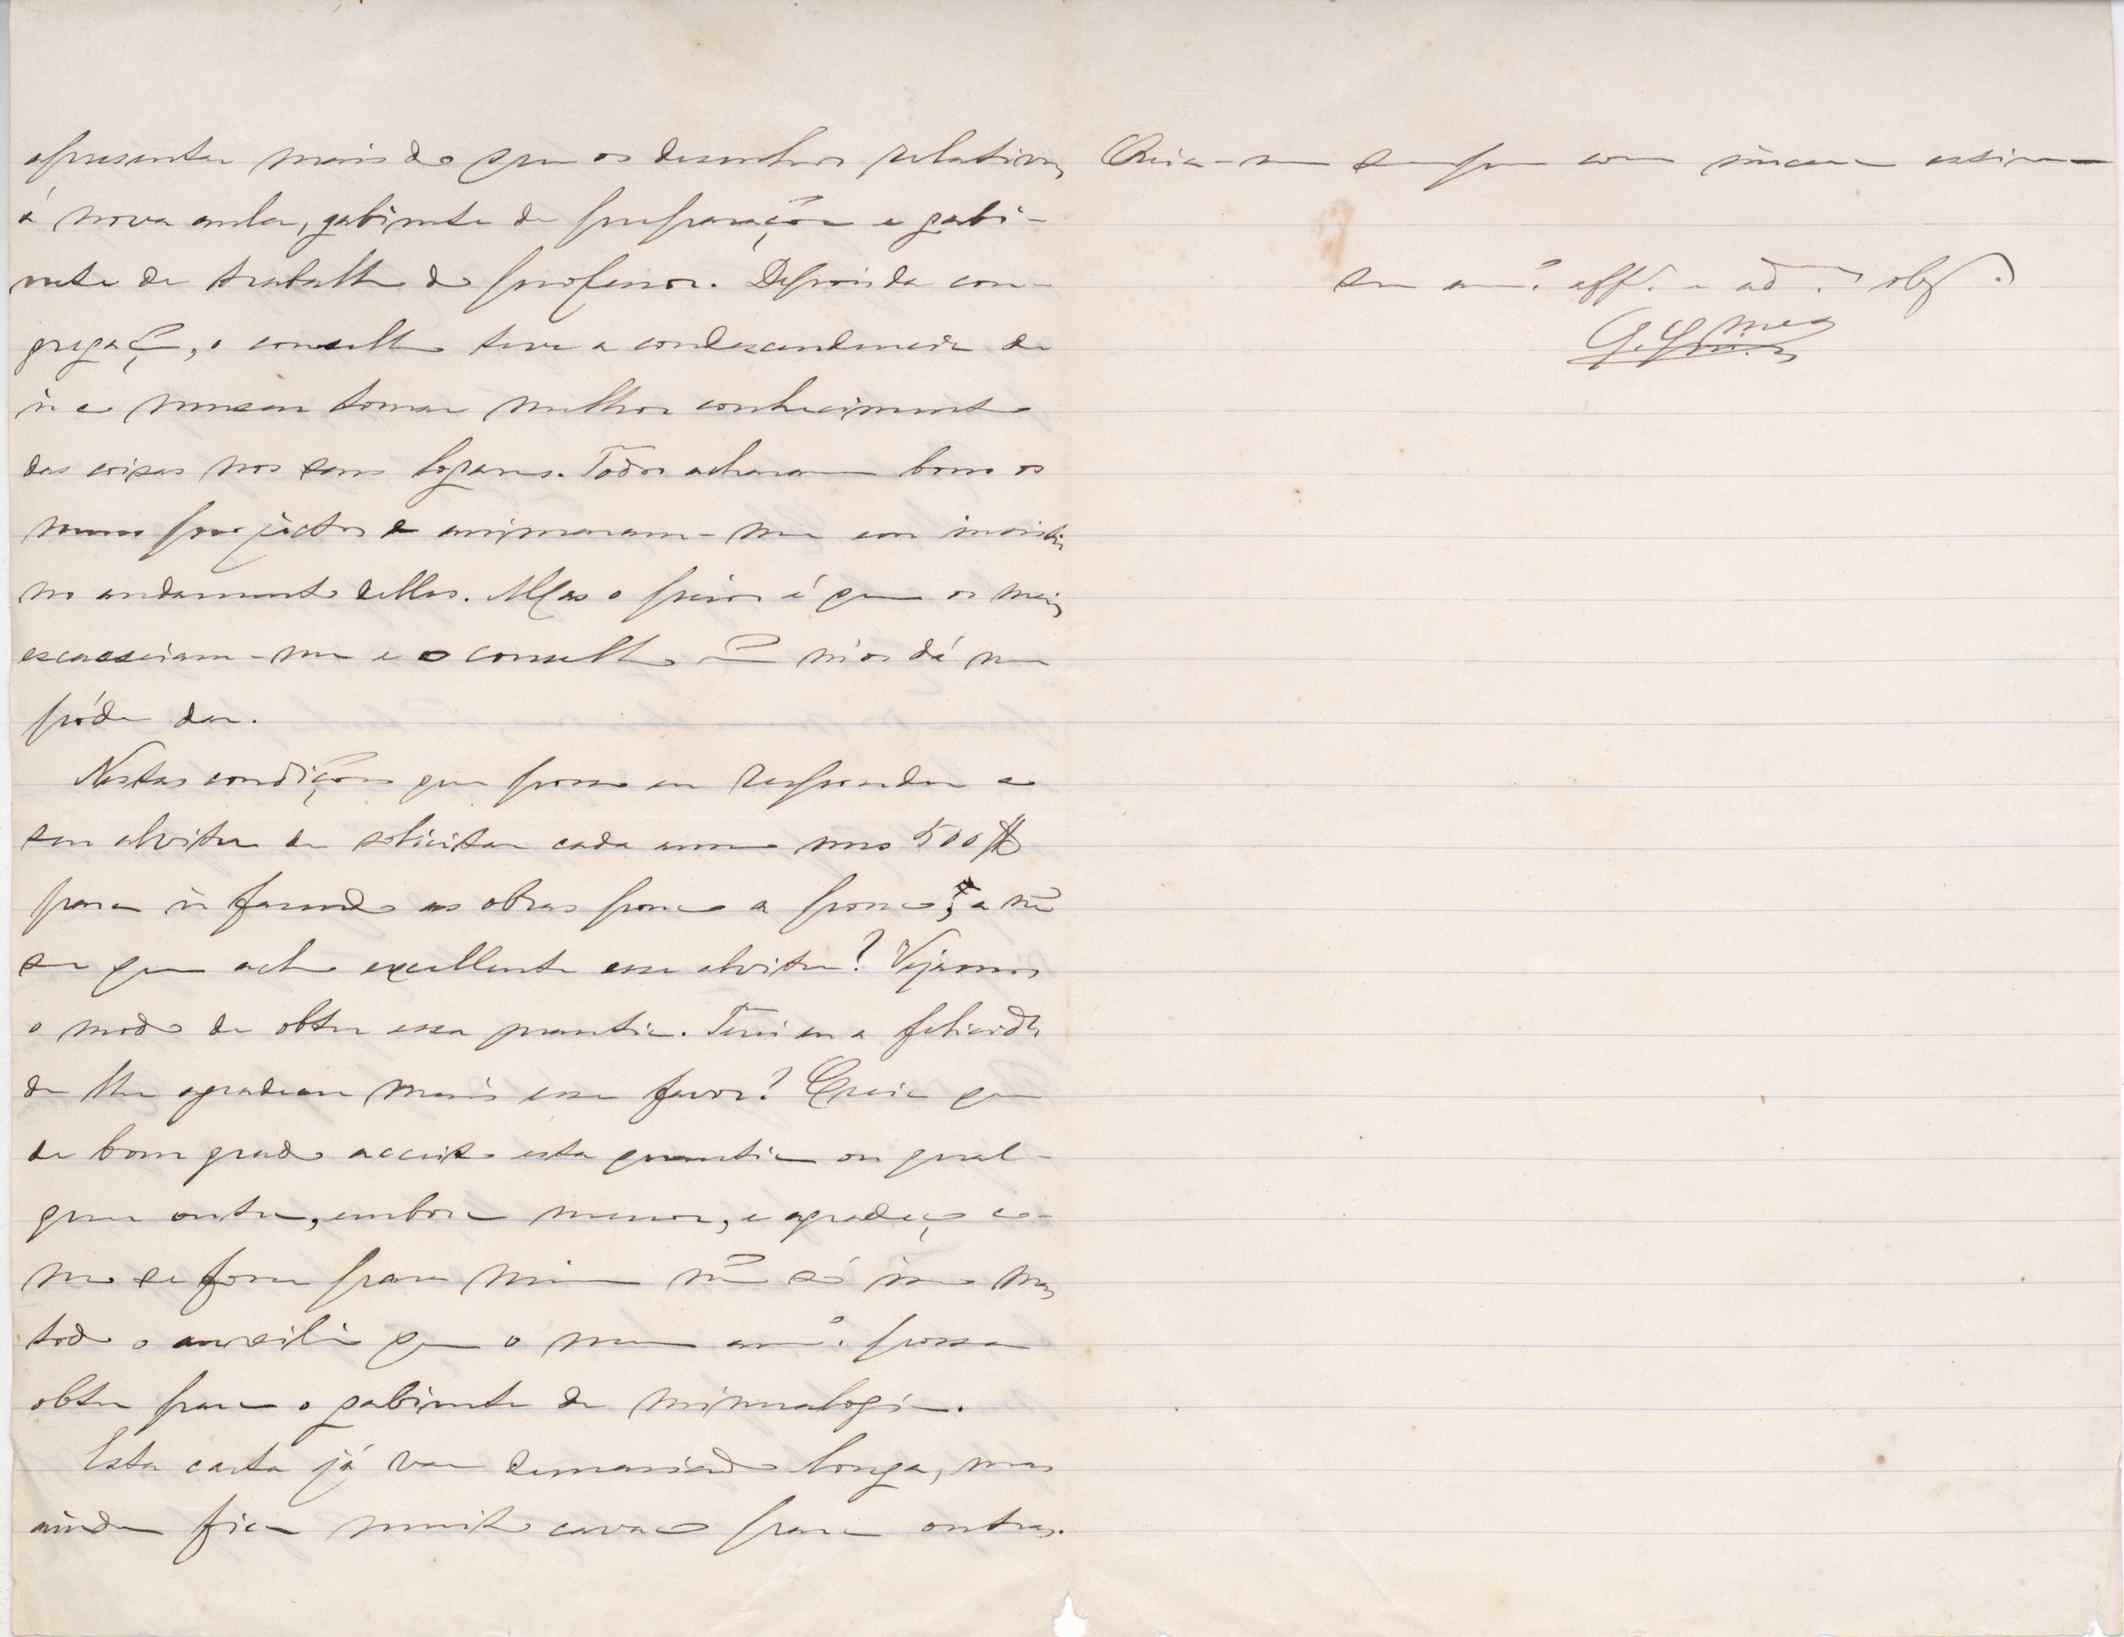 apresentar mais do que os desenhos relativos
á nova aula, gabinete de preparações e gabi-
nete de trabalho do professor. Depois da con-
gregação, o conselho teve a condescendencia de
ir ao museu tomar melhor conhecimento
das coisas nos seus logares. Todos acharam bons os
meus projectos e animaram-me em insistir
no andamento delles. Mas o peior é que os meios
escasseiam-me e o conselho não m'os dá nem
póde dar.
Nestas condições que posso eu responder ao
seu alvitre de solicitar cada anno uns 500$
para ir fazendo as obras pouco a pouco, a não
ser que acho excellente esse alvitre? Vejamos
o modo de obter essa quantia. Terei eu a felicidade
de lhe agradecer mais esse favor? Creia que
de bom grado acceito esta quantia ou qual-
quer outra, embora menor, e agradeço co-
mo se fora para mim não só isso mas
todo o auxilio que o meu amº. possa
obter para o gabinete de mineralogia.
Esta carta já vae demasiado longa, mas
ainda fica muito cavaco para outras.
Creia-me sempre com sincera estima
seu amº. affº. e adºr. obgº.
G. Guimes